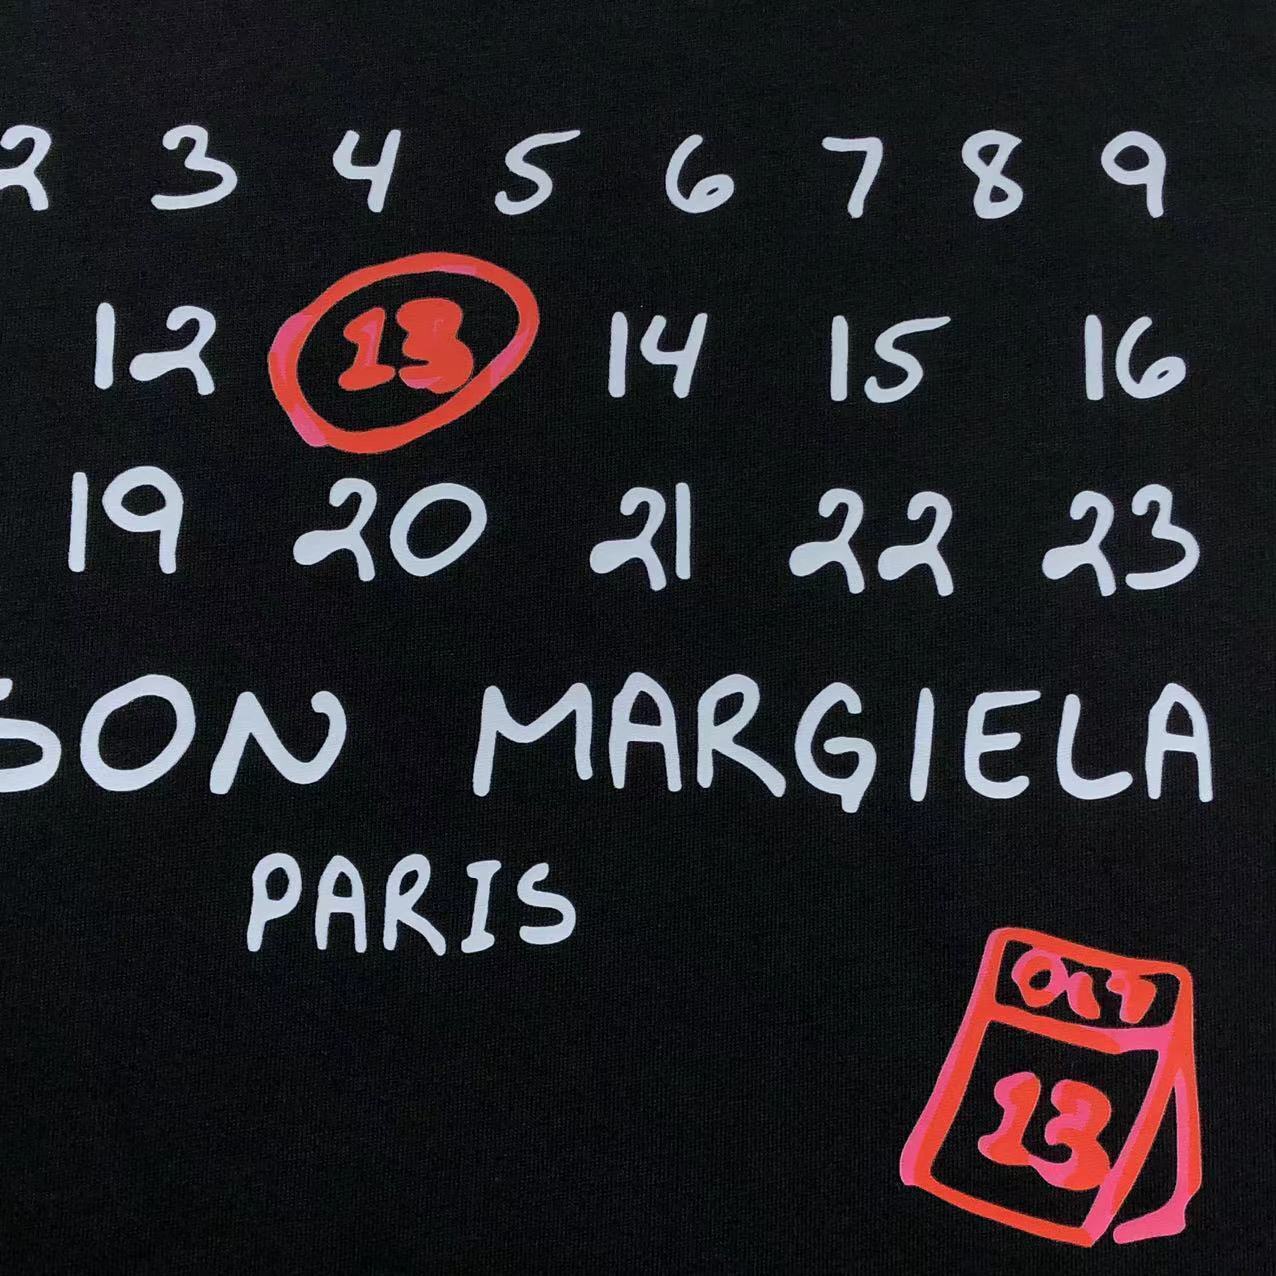 2 3 4 5 6 7 8 9
12 13 14 15 16
19 20 21 22 23
SON MARGIELA
PARIS
OCT
13